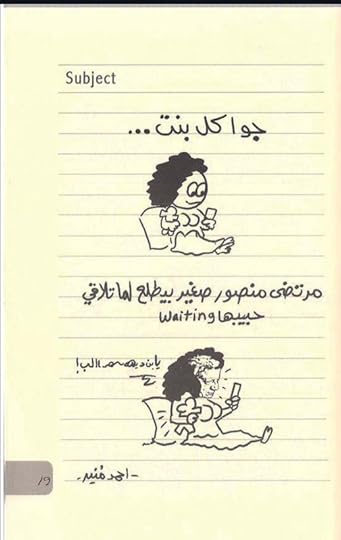 Subject
جوا كل بنت ...
مرتضى منصور صغير بيطلع لما تلاقي
حبيبها waiting
- احمد مُنير -
١٩